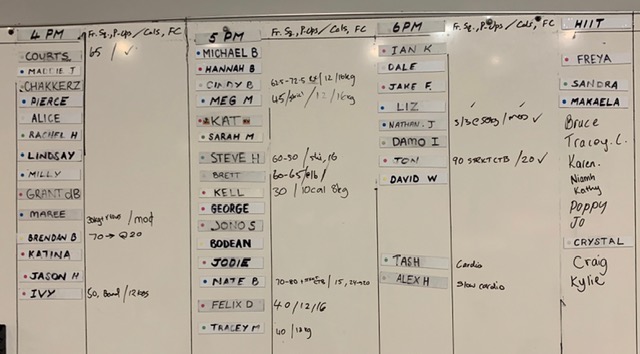 4 PM Fr. Sq., P-Ups / Cals, FC
COURTS 65 / ✓
MADDIE J
CHAKKERZ
PIERCE
ALICE
RACHEL H
LINDSAY
MILLY
GRANT dB
MAREE / mod
BRENDAN B 70 → @ 20
KATINA
JASON H
IVY 50, Band / 12kgs
5 PM Fr. Sq., P-Ups / Cals, FC
MICHAEL B
HANNAH B
CINDY B 62.5-72.5 / 12 / 16kg
MEG M 45 / 12 / 16kg
KAT
SARAH M
STEVE H 60-50 / 16
BRETT 60-65
KELL 30 / 10cal 8kg
GEORGE
JONO S
BODEAN
JODIE
NATE B 70-80 / 15, 24-20
FELIX D 40/12/16
TRACEY M 40
6 PM Fr. Sq., P-Ups / Cals, FC
IAN K
DALE
JAKE F.
LIZ
NATHAN. J 3/3@50kg / mod ✓
DAMO I
TON 90 STRKT CTB / 20 ✓
DAVID W
TASH Cardio
ALEX H Slow cardio
HIIT
FREYA
SANDRA
MAKAELA
Bruce
Tracey. L.
Karen.
Niamh
Kathy
Poppy
Jo
CRYSTAL
Craig
Kylie